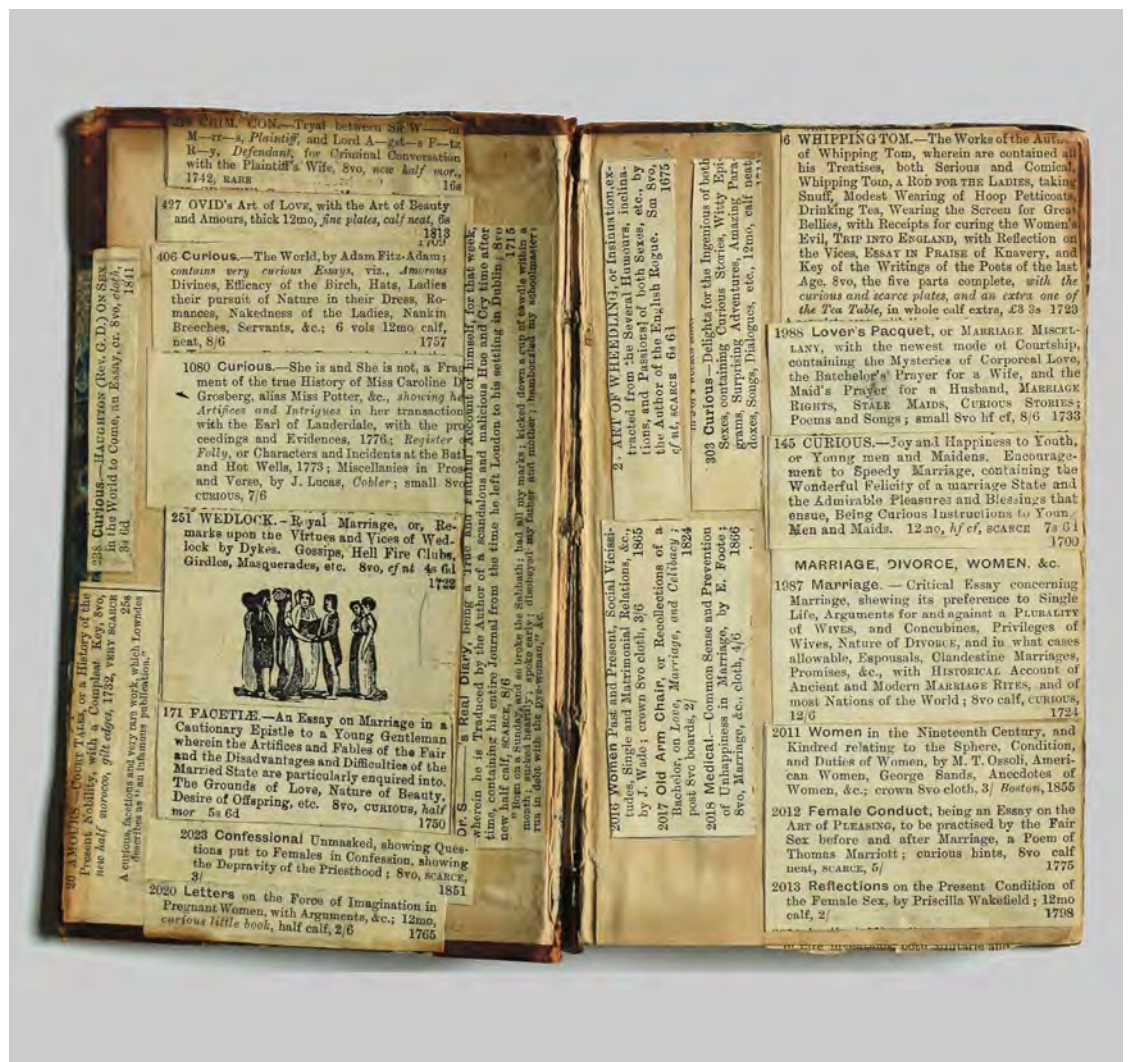 CRIM. CON.—Tryal between Sir W——m
M—rr—s, Plaintiff, and Lord A—gst—s F—tz
R—y, Defendant, for Criminal Conversation
with the Plaintiff's Wife, 8vo, new half mor.,
1742, RARE 16s
427 OVID's Art of LOVE, with the Art of Beauty
and Amours, thick 12mo, fine plates, calf neat, 6s
1813
1709
406 Curious.—The World, by Adam Fitz-Adam;
contains very curious Essays, viz., Amorous
Divines, Efficacy of the Birch, Hats, Ladies
their pursuit of Nature in their Dress, Ro-
mances, Nakedness of the Ladies, Nankin
Breeches, Servants, &c.; 6 vols 12mo calf,
neat, 8/6 1757
1080 Curious.—She is and She is not, a Frag
ment of the true History of Miss Caroline D
Grosberg, alias Miss Potter, &c., showing he
Artifices and Intrigues in her transaction
with the Earl of Lauderdale, with the pro
ceedings and Evidences, 1776; Register o
Folly, or Characters and Incidents at the Bath
and Hot Wells, 1773; Miscellanies in Prose
and Verse, by J. Lucas, Cobler; small 8vo
CURIOUS, 7/6
251 WEDLOCK.—Royal Marriage, or, Re-
marks upon the Virtues and Vices of Wed-
lock by Dykes. Gossips, Hell Fire Clubs,
Girdles, Masquerades, etc. 8vo, cf nt 4s 6d
1722
171 FACETIÆ.—An Essay on Marriage in a
Cautionary Epistle to a Young Gentleman
wherein the Artifices and Fables of the Fair
and the Disadvantages and Difficulties of the
Married State are particularly enquired into.
The Grounds of Love, Nature of Beauty,
Desire of Offspring, etc. 8vo, CURIOUS, half
mor 5s 6d 1750
2023 Confessional Unmasked, showing Ques-
tions put to Females in Confession, showing
the Depravity of the Priesthood; 8vo, SCARCE,
3/ 1851
2020 Letters on the Force of Imagination in
Pregnant Women, with Arguments, &c.; 12mo,
curious little book, half calf, 2/6 1765
238 Curious.—HAUGHTON (Rev. G. D.) ON SEX
in the World to Come, an Essay, cr. 8vo, cloth,
3s 6d 1841
20 AMOURS.—COURT TALES, or a History of the
Present Nobility, with a Compleat Key, 8vo,
new half morocco, gilt edges, 1732, VERY SCARCE
25s
A curious, facetious and very rare work, which Lowndes
describes as "an infamous publication."
Dr. S——'s Real Diary, being a True and Faithful Account of himself, for that week,
wherein he is Traduced by the Author of a scandalous and malicious Hue and Cry time after
time, containing his entire Journal from the time he left London to his settling in Dublin; 8vo
new half calf, SCARCE, 8/6 1715
"Born on a Sunday, and so broke the Sabbath; had all my marks; kicked down a cup of cawdle within a
month; sucked heartily; spoke early; disobeyed my father and mother; bamboozled my schoolmaster;
run in debt with the pye-woman," &c.
2. ART OF WHEEDLING, or Insinuation, ex-
tracted from the Several Humours, inclina-
tions, and Passions] of both Sexes, etc., by
the Author of the English Rogue. Sm 8vo,
cf nt, SCARCE 6s 6d 1675
303 Curious—Delights for the Ingenious of both
Sexes, containing Curious Stories, Witty Epi-
grams, Surprising Adventures, Amazing Para-
doxes, Songs, Dialogues, etc., 12mo, calf neat
2016 Women Past and Present, Social Vicissi-
tudes, Single and Matrimonial Relations, &c.,
by J. Wade; crown 8vo cloth, 3/6 1865
2017 Old Arm Chair, or Recollections of a
Bachelor, on Love, Marriage, and Celibacy;
post 8vo boards, 2/ 1824
2018 Medical.—Common Sense and Prevention
of Unhappiness in Marriage, by E. Foote;
8vo, Marriage, &c., cloth, 4/6 1866
6 WHIPPING TOM.—The Works of the
of Whipping Tom, wherein are contained all
his Treatises, both Serious and Comical,
Whipping Tom, a ROD FOR THE LADIES, taking
Snuff, Modest Wearing of Hoop Petticoats,
Drinking Tea, Wearing the Screen for Great
Bellies, with Receipts for curing the Women's
Evil, TRIP INTO ENGLAND, with Reflection on
the Vices, ESSAY IN PRAISE of Knavery, and
Key of the Writings of the Poets of the last
Age. 8vo, the five parts complete, with the
curious and scarce plates, and an extra one of
the Tea Table, in whole calf extra, £3 3s 1723
1988 Lover's Pacquet, or MARRIAGE MISCEL-
LANY, with the newest mode of Courtship,
containing the Mysteries of Corporeal Love,
the Batchelor's Prayer for a Wife, and the
Maid's Prayer for a Husband, MARRIAGE
RIGHTS, STALE MAIDS, CURIOUS STORIES;
Poems and Songs; small 8vo hf cf, 8/6 1733
145 CURIOUS.—Joy and Happiness to Youth,
or Young men and Maidens. Encourage-
ment to Speedy Marriage, containing the
Wonderful Felicity of a marriage State and
the Admirable Pleasures and Blessings that
ensue, Being Curious Instructions to Young
Men and Maids. 12mo, hf cf, SCARCE 7s 6d
1700
MARRIAGE, DIVORCE, WOMEN, &c.
1987 Marriage.—Critical Essay concerning
Marriage, shewing its preference to Single
Life, Arguments for and against a PLURALITY
OF WIVES, and Concubines, Privileges of
Wives, Nature of DIVORCE, and in what cases
allowable, Espousals, Clandestine Marriages,
Promises, &c., with HISTORICAL Account of
Ancient and Modern MARRIAGE RITES, and of
most Nations of the World; 8vo calf, CURIOUS,
12/6 1724
2011 Women in the Nineteenth Century, and
Kindred relating to the Sphere, Condition,
and Duties of Women, by M. T. Ossoli, Ameri-
can Women, George Sands, Anecdotes of
Women, &c.; crown 8vo cloth, 3/ Boston, 1855
2012 Female Conduct, being an Essay on the
ART OF PLEASING, to be practised by the Fair
Sex before and after Marriage, a Poem of
Thomas Marriott; curious hints, 8vo calf
neat, SCARCE, 5/ 1775
2013 Reflections on the Present Condition of
the Female Sex, by Priscilla Wakefield; 12mo
calf, 2/ 1798